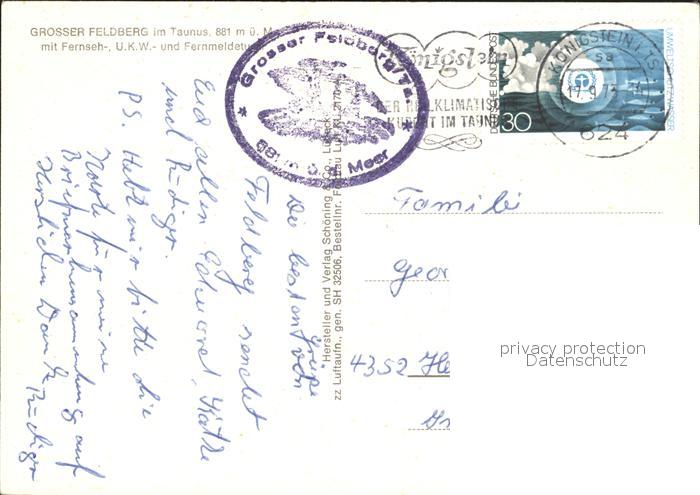 GROSSER FELDBERG im Taunus, 881 m ü. M
mit Fernseh-, U.K.W.- und Fernmeldetu
* Grosser Feldberg/Ts. *
881 m ü. d. Meer
Königstein
DER HEILKLIMATISCHE
KURORT IM TAUNUS
KÖNIGSTEIN
17.9.73
624
DEUTSCHE BUNDESPOST
30
UMWELTSCHUTZ WASSER
Die besten Grüße
vom
Feldberg sendet
Euch allen Edmund, Käthe
und Rüdiger.
PS. Hebt mir bitte die
Marke für meine
Briefmarkensammlung auf
Herzlichen Dank Rüdiger
Hersteller und Verlag Schöning
zz Luftaufn., gen. SH 32506, Bestellnr.
Familie
Geor
4352 He
privacy protection
Datenschutz